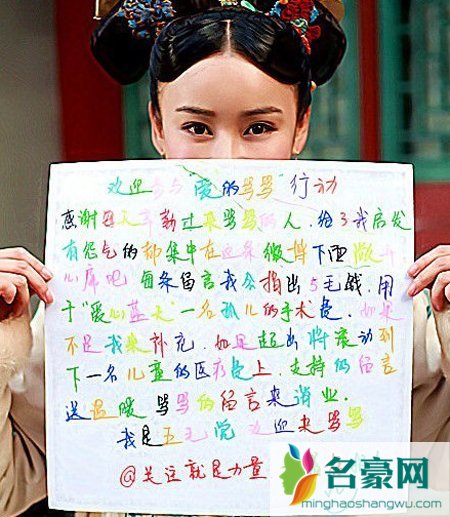 欢迎参与"爱的骂骂"行动
感谢每天辛勤过来骂骂的人.给了我启发
有怨气的都集中在这条微博下面做
心席吧 每条留言我会捐出5毛钱.用
于"爱心蓝天"一名孤儿的手术费.如果
不足我来补充.如是超出将滚动到
下一名儿童的医疗费上.支持的留言
送温暖 骂骂的留言来消业.
我是五毛党 欢迎来骂骂
@关注就是力量
名豪网
minghaoshangwu.com